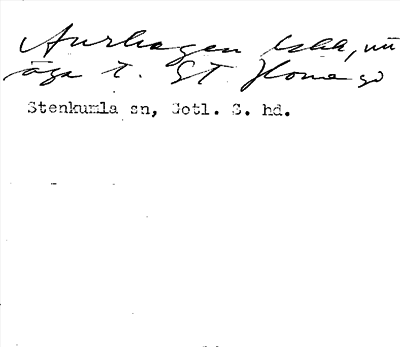 Aurhagen lskh, nu
äga t. St Home go
Stenkumla sn, Gotl. S. hd.